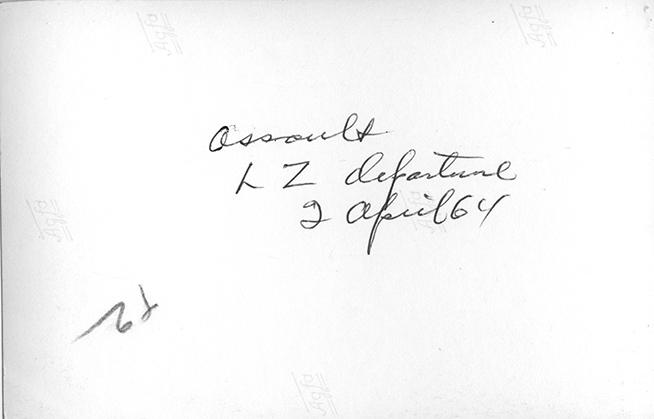 assault
LZ departure
2 April 64
Agfa
Agfa
Agfa
Agfa
Agfa